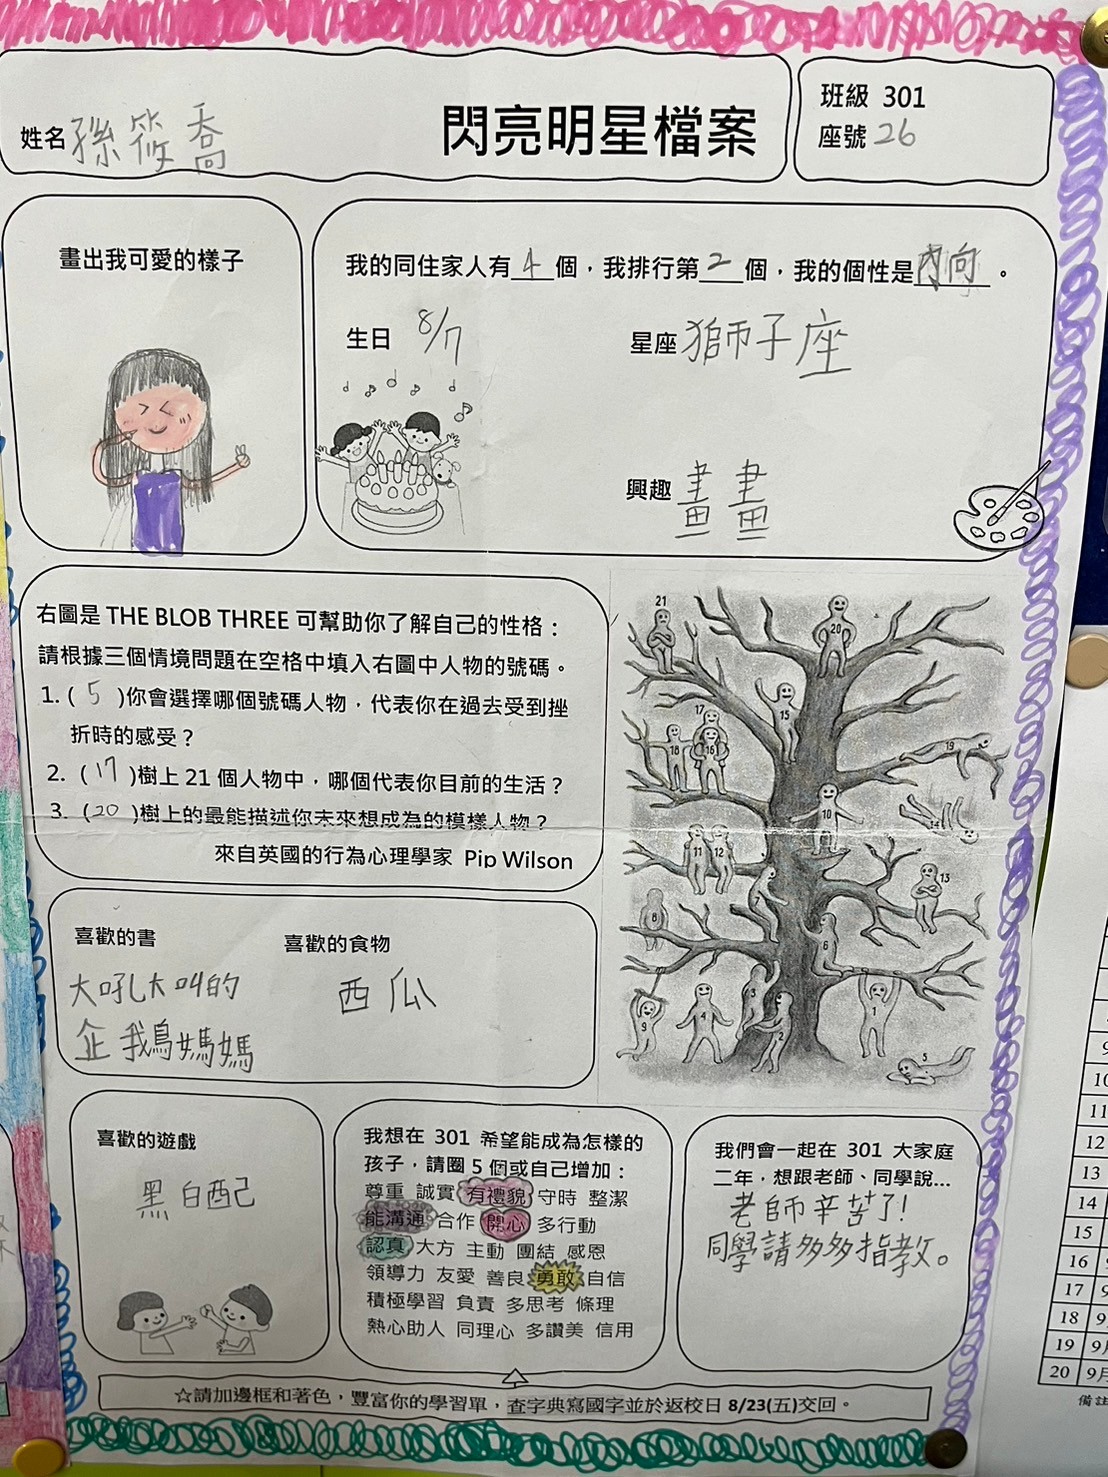 姓名 孫筱喬
閃亮明星檔案
班級 301
座號 26
畫出我可愛的樣子
我的同住家人有 4 個，我排行第 2 個，我的個性是 內向 。
生日 8/7
星座 獅子座
興趣 畫畫
右圖是 THE BLOB THREE 可幫助你了解自己的性格：
請根據三個情境問題在空格中填入右圖中人物的號碼。
1. ( 5 )你會選擇哪個號碼人物，代表你在過去受到挫
折時的感受？
2. ( 17 )樹上 21 個人物中，哪個代表你目前的生活？
3. (20 )樹上的最能描述你未來想成為的模樣人物？
來自英國的行為心理學家 Pip Wilson
21
20
17
15
18
16
19
10
14
11 12
13
7
8
6
9
4
3
2
1
5
喜歡的書
大吼大叫的
企我鳥媽媽
喜歡的食物
西瓜
喜歡的遊戲
黑白配
我想在 301 希望能成為怎樣的
孩子，請圈 5 個或自己增加：
尊重 誠實 有禮貌 守時 整潔
能溝通 合作 開心 多行動
認真 大方 主動 團結 感恩
領導力 友愛 善良 勇敢 自信
積極學習 負責 多思考 條理
熱心助人 同理心 多讚美 信用
我們會一起在 301 大家庭
二年，想跟老師、同學說...
老師辛苦了！
同學請多多指教。
☆請加邊框和著色，豐富你的學習單，查字典寫國字並於返校日 8/23(五)交回。
10
11
12
13
14
15
16
17
18 9
19 9月
20 9月
備註